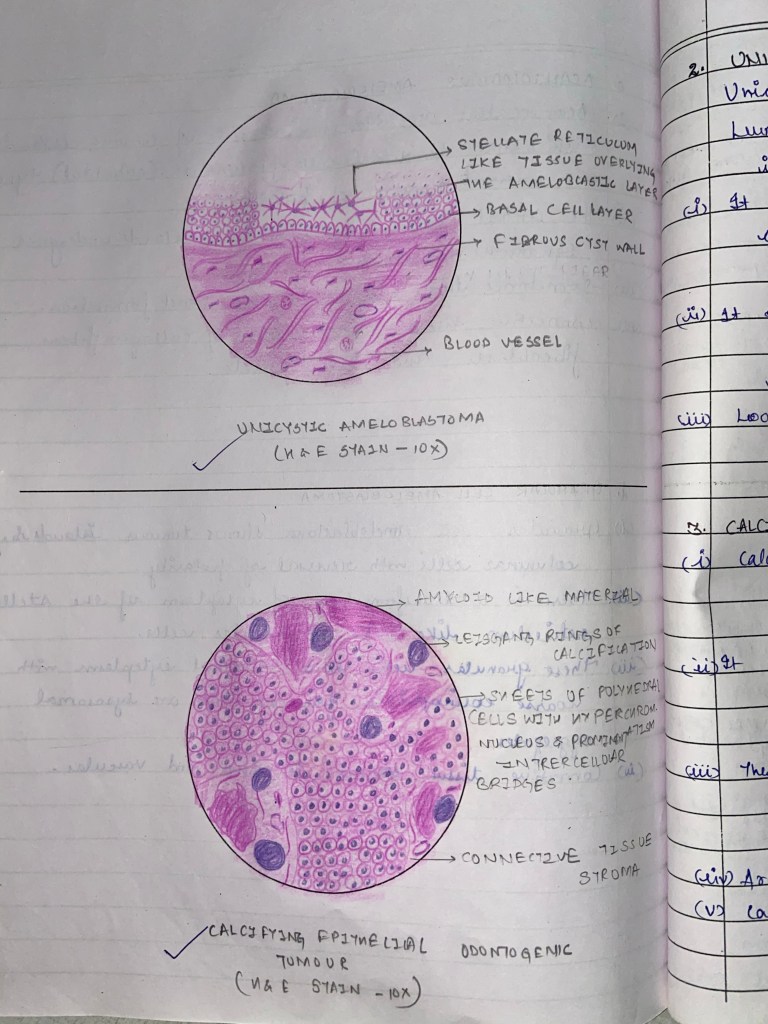 STELLATE RETICULUM
LIKE TISSUE OVERLYING
THE AMELOBLASTIC LAYER
BASAL CELL LAYER
FIBROUS CYST WALL
BLOOD VESSEL
UNICYSTIC AMELOBLASTOMA
(H & E STAIN - 10X)
AMYLOID LIKE MATERIAL
LEISGANG RINGS OF
CALCIFICATION
SHEETS OF POLYHEDRAL
CELLS WITH HYPERCHROM
NUCLEUS &
INTRERCELLULAR
BRIDGES
CONNECTIVE TISSUE
STROMA
CALCIFYING EPITHELIAL ODONTOGENIC
TUMOUR
(H & E STAIN - 10X)
2. UNI
Unic
Lum
(i) It
(ii) It
(iii) Loo
3. CALC
(i) Calc
(ii) It
(iii) The
(iv) Am
(v) Ca